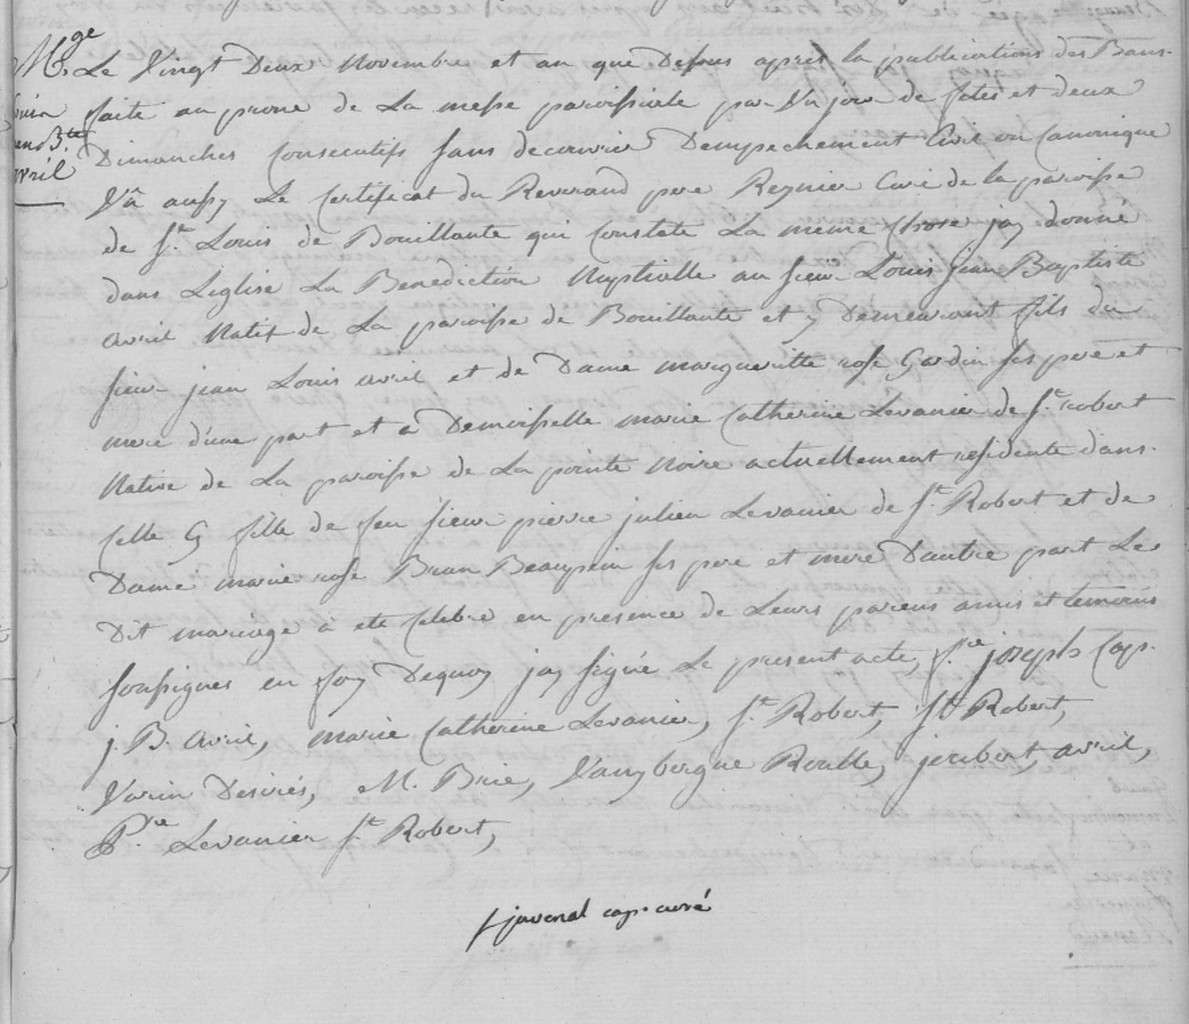 M.ge
Le Vingt Deux Novembre et an que Dessus après la publications des Bans
faite au prone de La messe paroissiale par Un jour de fetes et deux
en B.te
Dimanches Consecutifs sans decouvrir Dempechement Civil ou Canonique
avril
Vû aussy Le Certificat du Reverand pere Reynier Curé de la paroisse
de St. Louis de Bouillante qui Constate La meme Chose jay donné
dans Leglise La Benediction Nuptialle au sieur Louis jean Baptiste
avril Natif de La paroisse de Bouillante et y Demeurant fils du
sieur jean Louis avril et de Dame margueritte rose Gardin ses pere et
mere d'une part et a Demoiselle marie Catherine Levanier de St. robert
Native de La paroisse de La pointe Noire actuellement residente dans
Celle Cy fille de feu sieur pierre julien Levanier de St. Robert et de
Dame marie rose Brun Beaupein ses pere et mere Dautre part Le
Dit mariage à eté Celebré en presence de Leurs parens amis et temoins
soussignes en foy Dequoy jay signé Le present acte, f.re joseph Cap.
j. B. avril, marie Catherine Levanier, St. Robert, St Robert,
Varin Desirés, M. Brie, Roulle, joubert, avril,
P.re Levanier St. Robert,
f. juvenal cap. curé